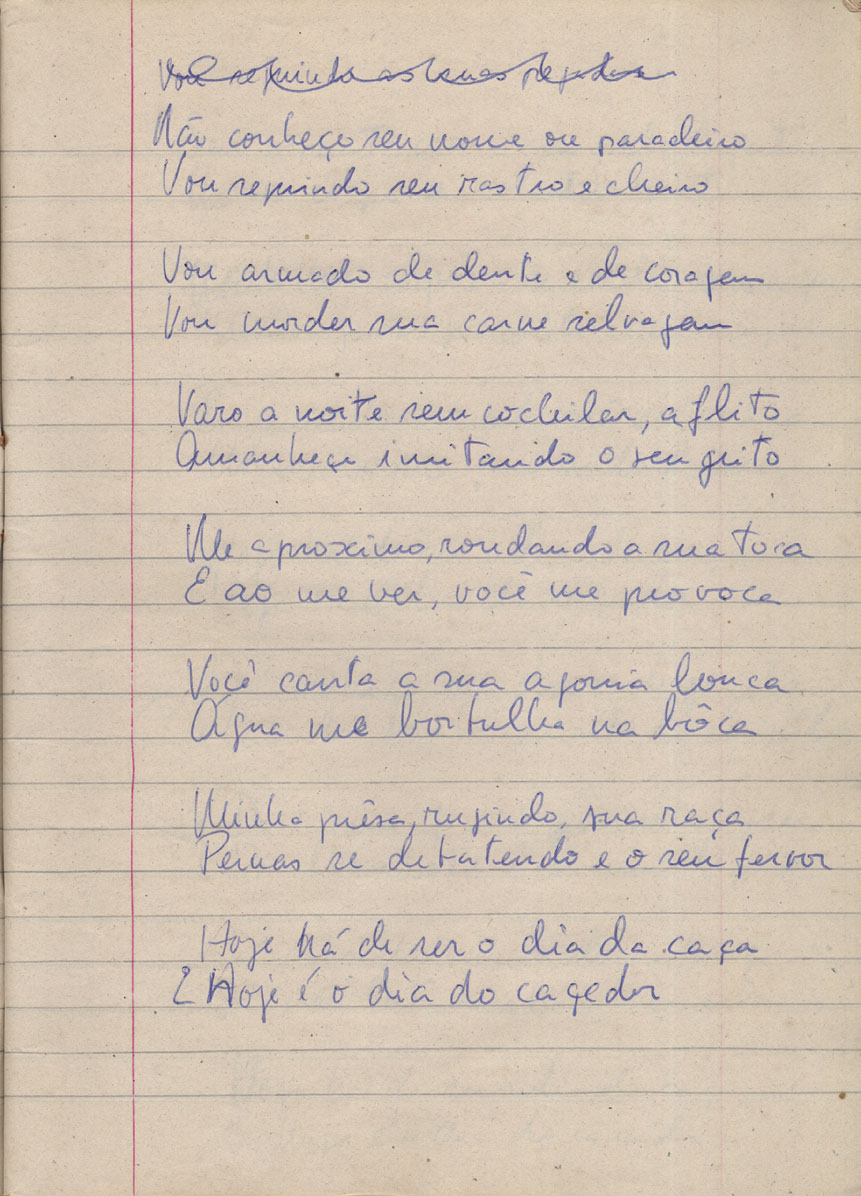 Vou seguindo as suas pegadas
Não conheço seu nome ou paradeiro
Vou seguindo seu rastro e cheiro
Vou armado de dente e de coragem
Vou morder sua carne selvagem
Varo a noite sem cochilar, aflito
Amanheço imitando o seu grito
Me aproximo, rondando a sua toca
E ao me ver, você me provoca
Você canta a sua agonia louca
Água me borbulha na bôca
Minha prêsa, rugindo, sua raça
Pernas se debatendo e o seu fervor
Hoje há de ser o dia da caça
E Hoje é o dia do caçador